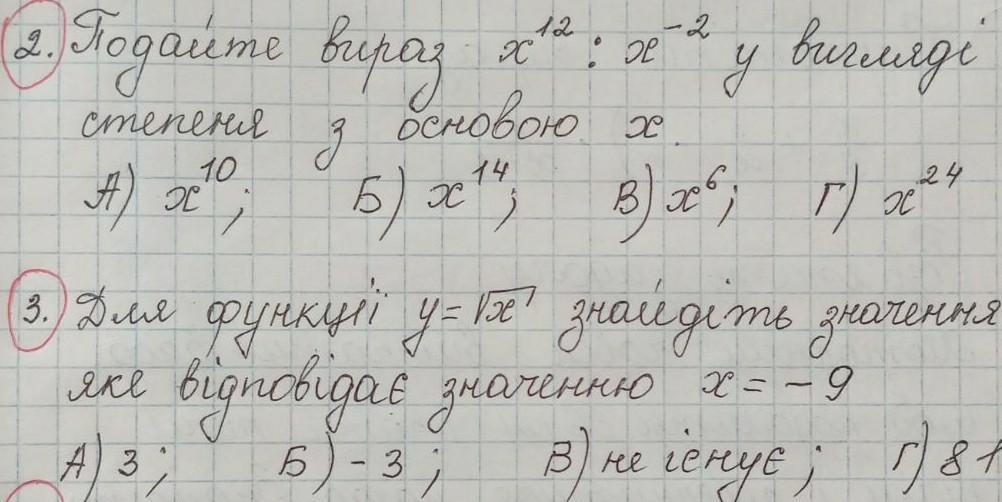 2. Подайте вираз x¹² : x⁻² у вигляді
степеня з основою x.
А) x¹⁰; Б) x¹⁴; В) x⁶; Г) x²⁴
3. Для функції y=√x знайдіть значення
яке відповідає значенню x = -9
А) 3; Б) -3; В) не існує; Г) 81